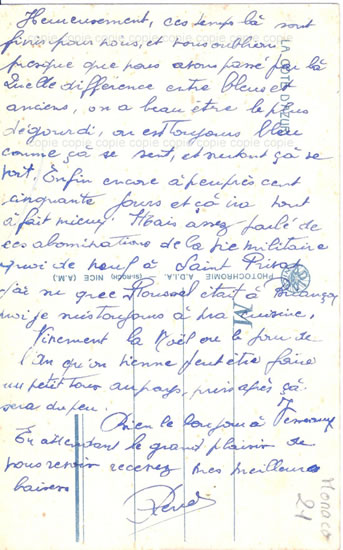 Heureusement, ces temps là sont
finis pour nous, et nous oublions
presque que nous avons passé par là
Quelle différence entre bleus et
anciens, on a beau être le plus
dégourdi, on est toujours bleu
comme çà se sent, et surtout çà se
voit. Enfin encore à peu près cent
cinquante jours et çà ira tout
à fait mieux. Mais assez parlé de
ces abominations de la vie militaire
quoi de neuf à Saint Privat
j'ai su que Roussel était à
moi je suis toujours à ma cuisine,
Vivement la Noël ou le jour de
l'An qu'on vienne peut être faire
un petit tour au pays, puis après çà
sera du peu.
Bien le bonjour à
En attendant le grand plaisir de
vous revoir recevez mes meilleurs
baisers
René
LA COTE D'AZUR
PHOTOCHROMIE A.D.I.A. NICE (A.M.)
M
Monaco
21
copie copie copie copie copie